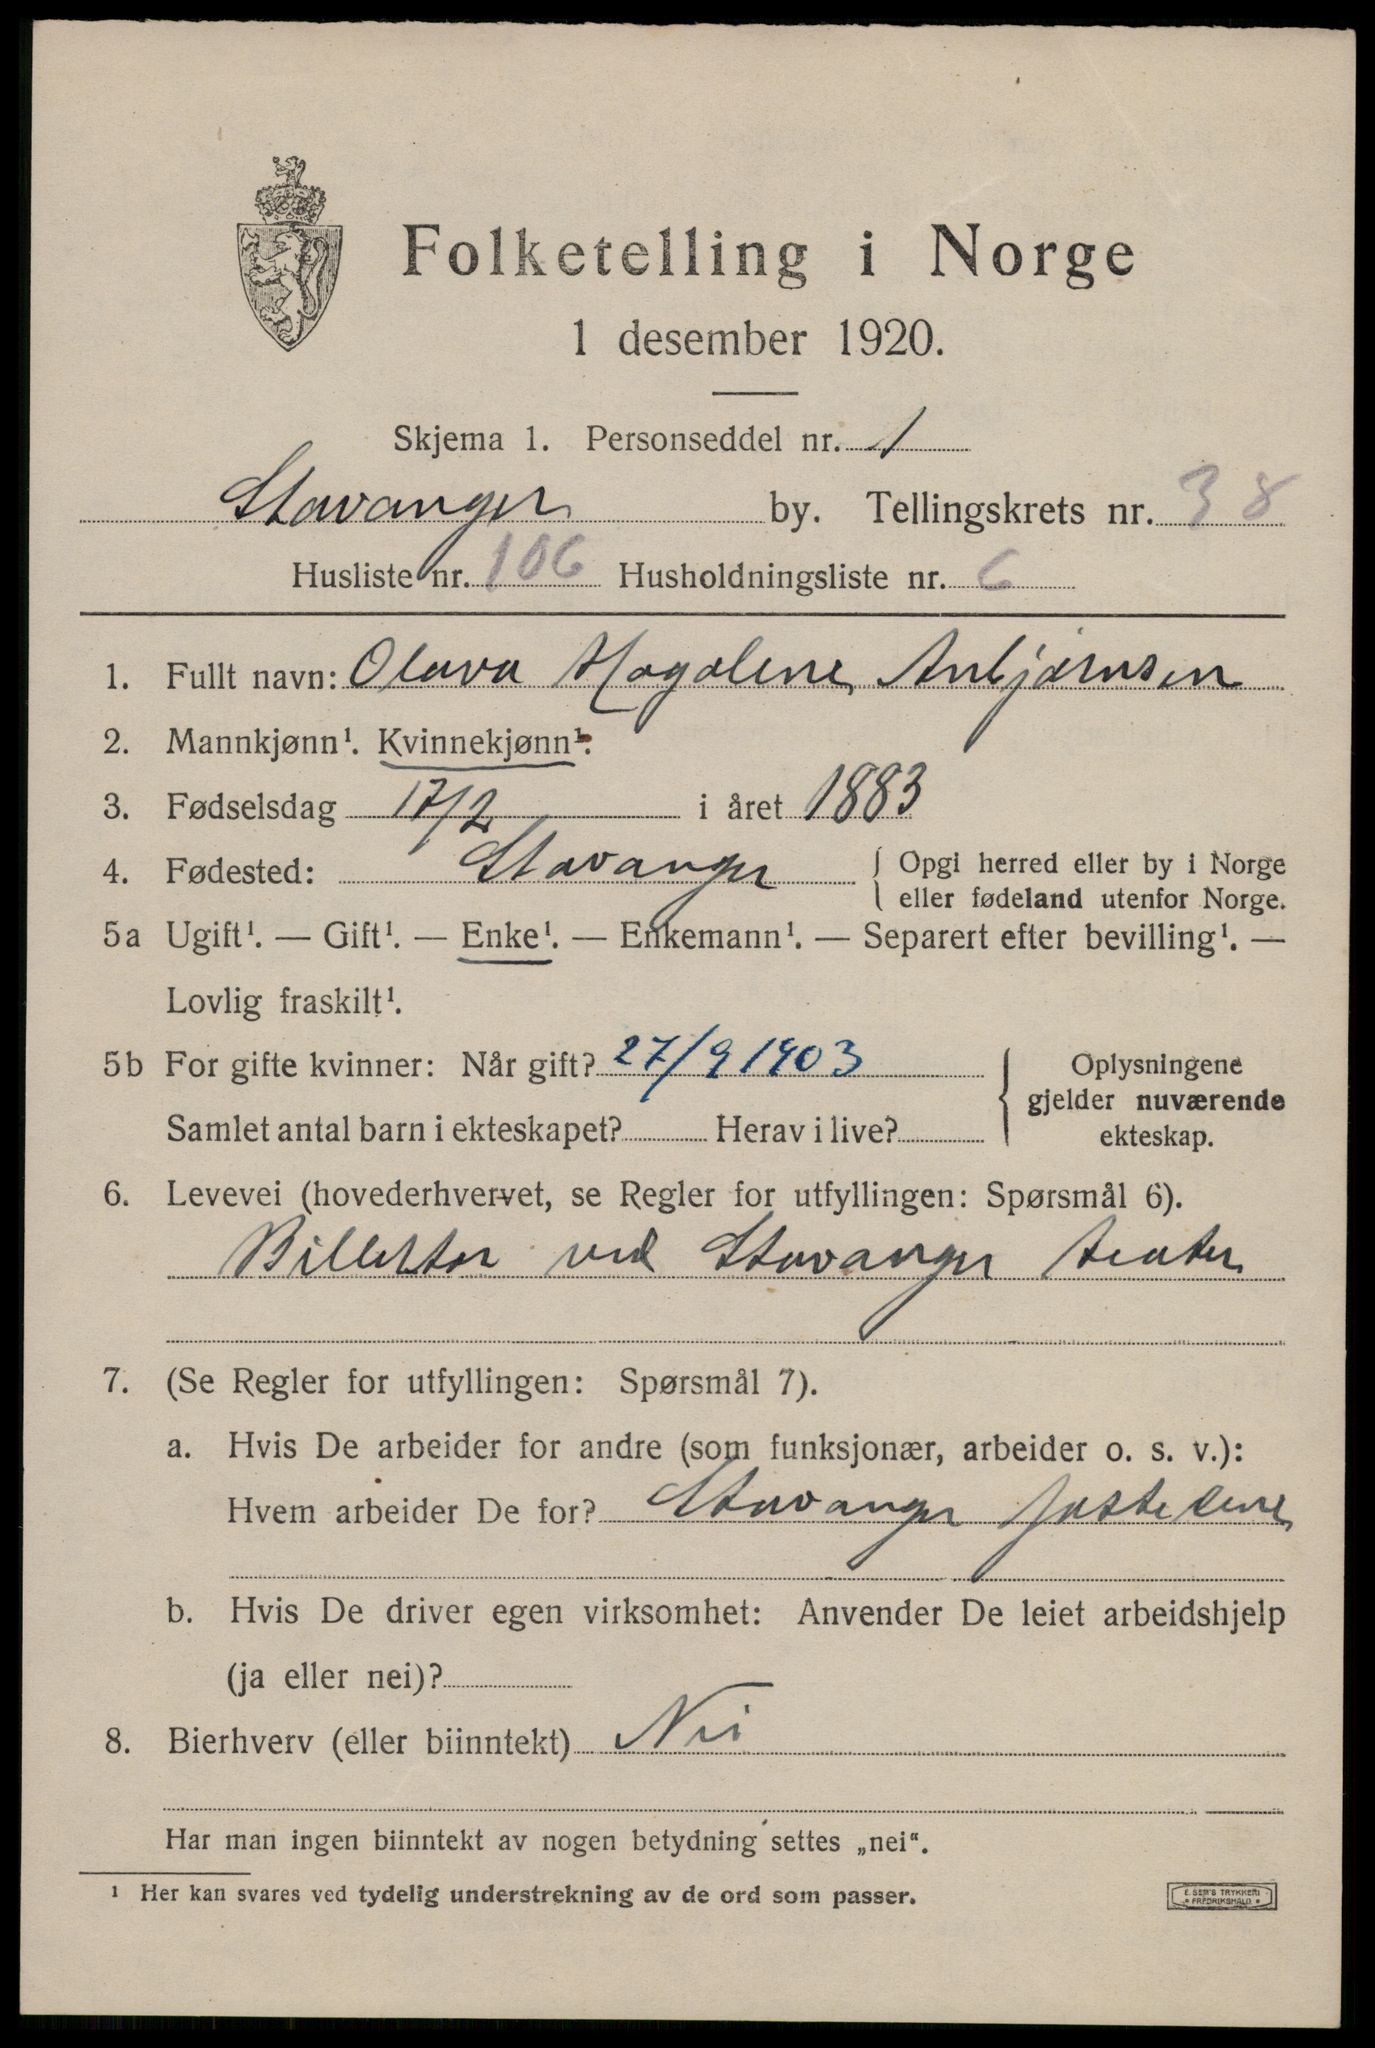 Folketelling i Norge
1 desember 1920.
Skjema 1. Personseddel nr. 1
Stavanger by. Tellingskrets nr. 38
Husliste nr. 106 Husholdningsliste nr. 6
1. Fullt navn: Olava Magdalene Anbjørnsen
2. Mannkjønn¹. Kvinnekjønn¹.
3. Fødselsdag 17/2 i året 1883
4. Fødested: Stavanger { Opgi herred eller by i Norge
eller fødeland utenfor Norge.
5a Ugift¹. — Gift¹. — Enke¹. — Enkemann¹. — Separert efter bevilling¹. —
Lovlig fraskilt¹.
5b For gifte kvinner: Når gift? 27/9 1903
Samlet antal barn i ekteskapet? Herav i live?
{ Oplysningene
gjelder nuværende
ekteskap.
6. Levevei (hovederhvervet, se Regler for utfyllingen: Spørsmål 6).
Billettør ved Stavanger teater
7. (Se Regler for utfyllingen: Spørsmål 7).
a. Hvis De arbeider for andre (som funksjonær, arbeider o. s. v.):
Hvem arbeider De for? Stavanger
b. Hvis De driver egen virksomhet: Anvender De leiet arbeidshjelp
(ja eller nei)?
8. Bierhverv (eller biinntekt) Nei
Har man ingen biinntekt av nogen betydning settes „nei“.
¹ Her kan svares ved tydelig understrekning av de ord som passer.
E. SEM'S TRYKKERI
FREDRIKSHALD